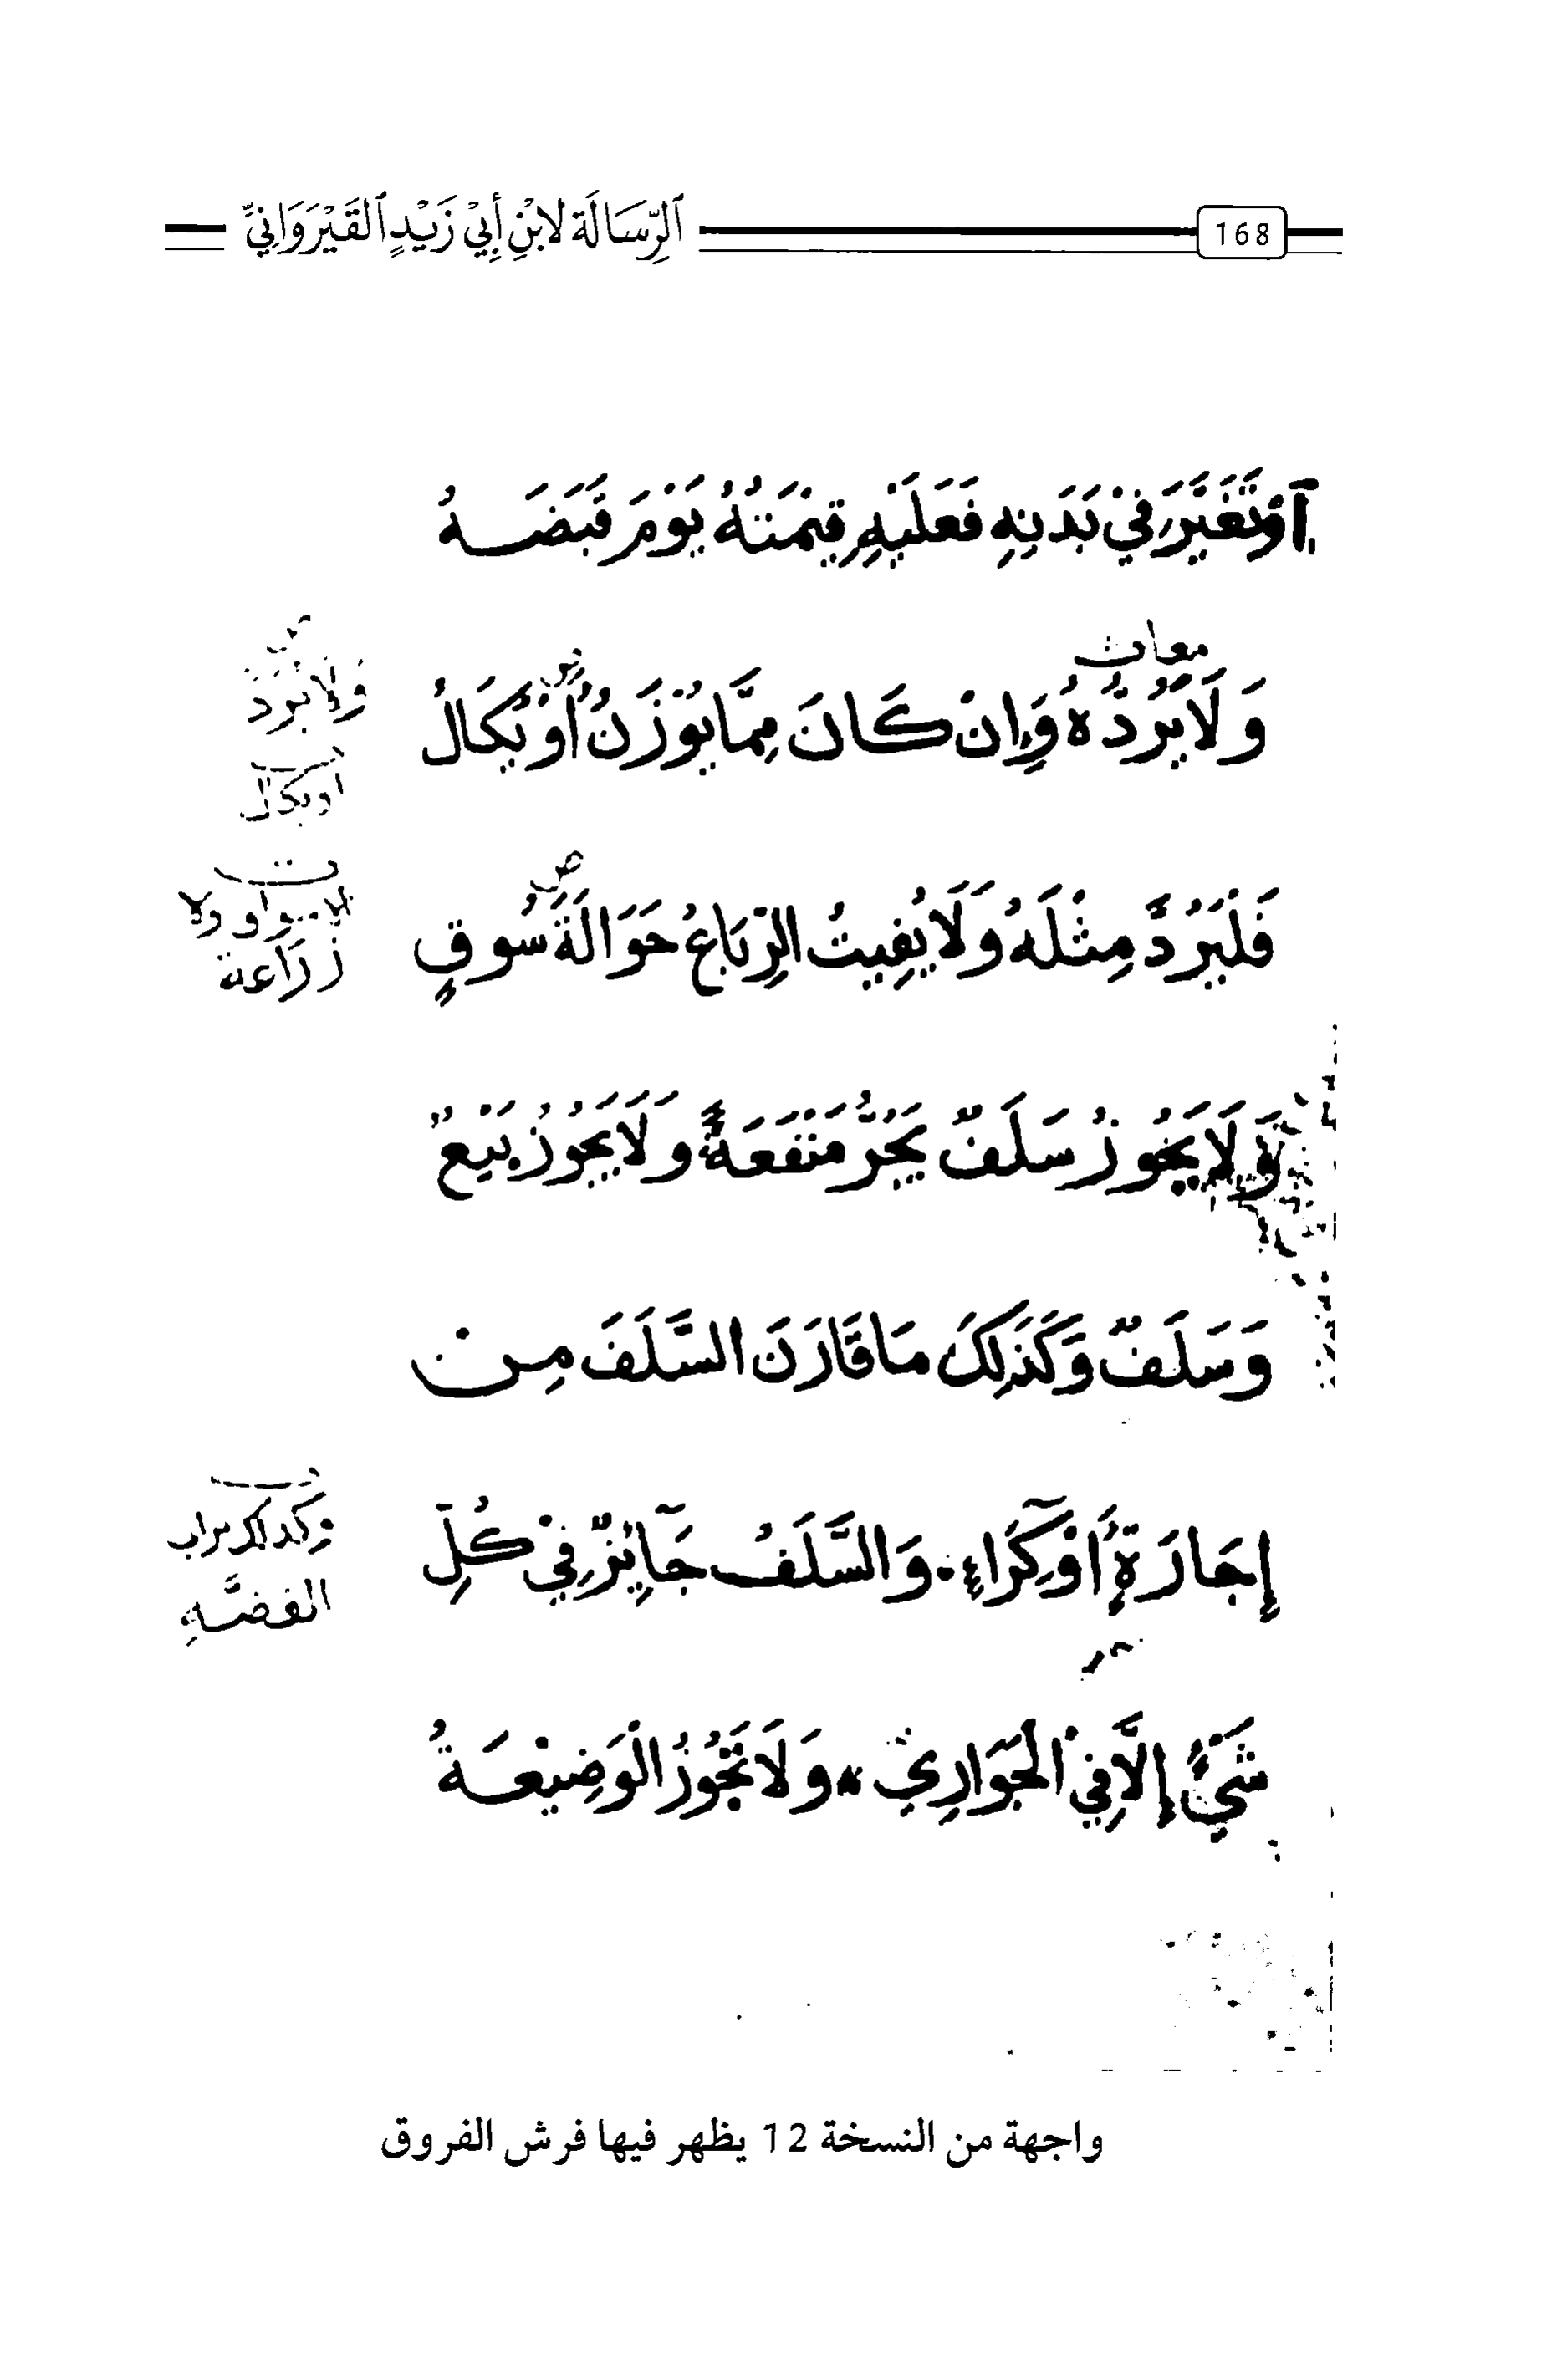 168
ٱلرِّسَالَة لابْنِ أَبِيْ زَيْدٍ ٱلقَيْرَوَانِيِّ
أَوْ تَغَيَّرَ فِيْ بَدَنِهِ فَعَلَيْهِ قِيْمَتُهُ يَوْمَ قَبَضَهُ
معا ث
وَلَا يَرُدُّهُ وَإِنْ كَانَ مِمَّا يُوْزَنُ أَوْ يُكَالُ
وَلَا يَرُدّ
أو يكال
فَلْيَرُدَّ مِثْلَهُ وَلَا يُفِيتُ الرِّبَاعَ حَوَالَةُ سُوقٍ
وَلَا يَجُوزُ سَلَفٌ يَجُرُّ مَنْفَعَةً وَلَا يَجُوْزُ بَيْعٌ
وَسَلَفٌ وَكَذَلِكَ مَا قَارَنَ السَّلَفَ مِنْ
إِجَارَةٍ أَوْ كِرَاءٍ وَالسَّلَفُ جَآئِزٌ فِيْ كُلِّ
الفضّه
شَيْءٍ إِلَّا فِيْ الْجَوَارِيْ وَلَا تَجُوْزُ الْوَضِيْعَةُ
واجهة من النسخة 12 يظهر فيها فرش الفروق